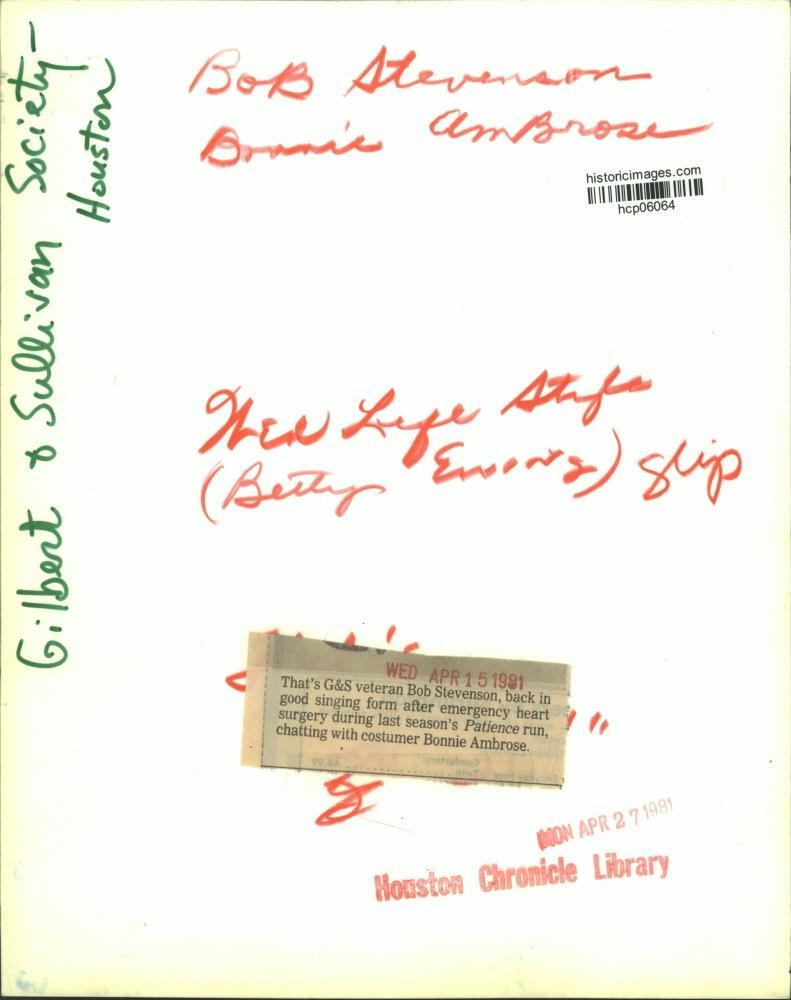 Gilbert & Sullivan Society-
Houston
Bob Stevenson
Bonnie Ambrose
historicimages.com
hcp06064
Wed Life Style
(Betty Ewing) slip
WED APR 15 1981
That's G&S veteran Bob Stevenson, back in
good singing form after emergency heart
surgery during last season's Patience run,
chatting with costumer Bonnie Ambrose.
MON APR 27 1981
Houston Chronicle Library